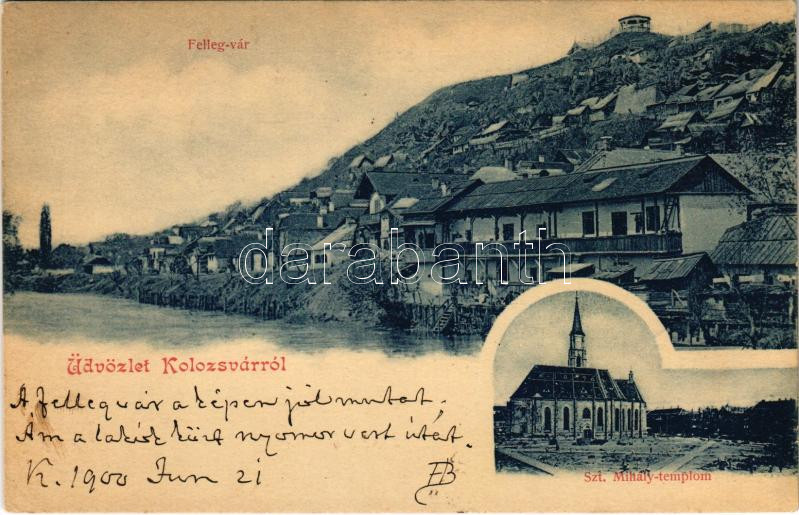 Felleg-vár
darabanth
Üdvözlet Kolozsvárról
A fellegvár a képen jól mutat.
Ám a lakók közt nyomor vert útát.
K. 1900 Jun 21
Szt. Mihály-templom